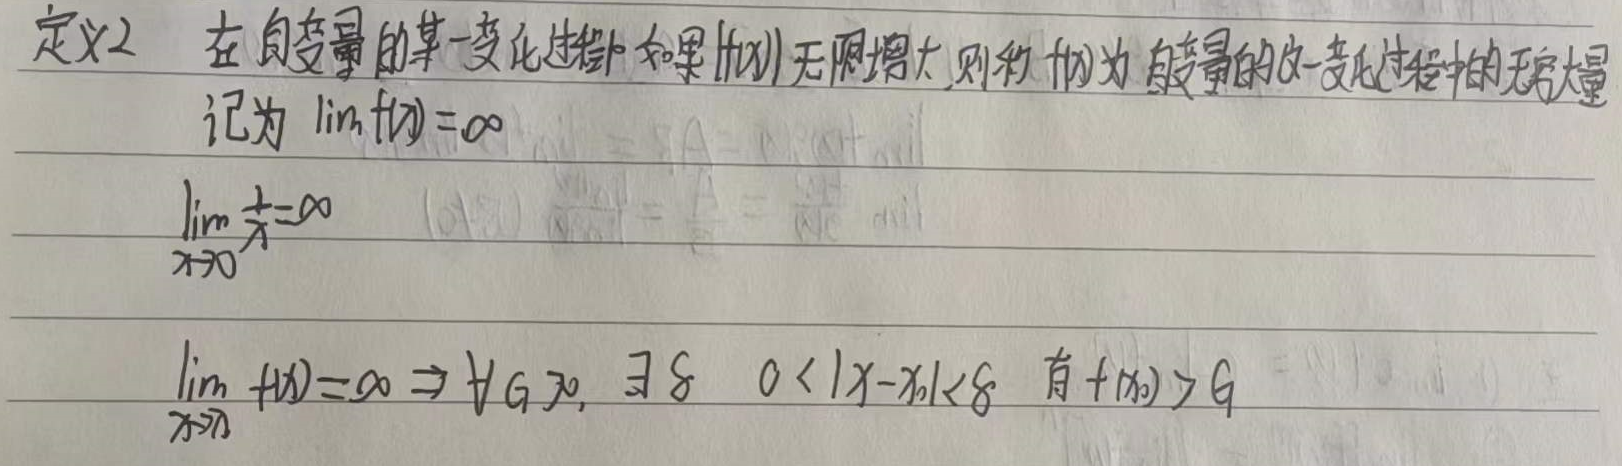 定义2 在自变量的某一变化过程中 如果|f(x)|无限增大,则称 f(x)为 自变量的这一变化过程中的无穷大量
记为 lim f(x)=∞
lim 1/x=∞
x→0
lim f(x)=∞ ⇒ ∀G>0, ∃δ 0<|x-x₀|<δ 有f(x₀)>G